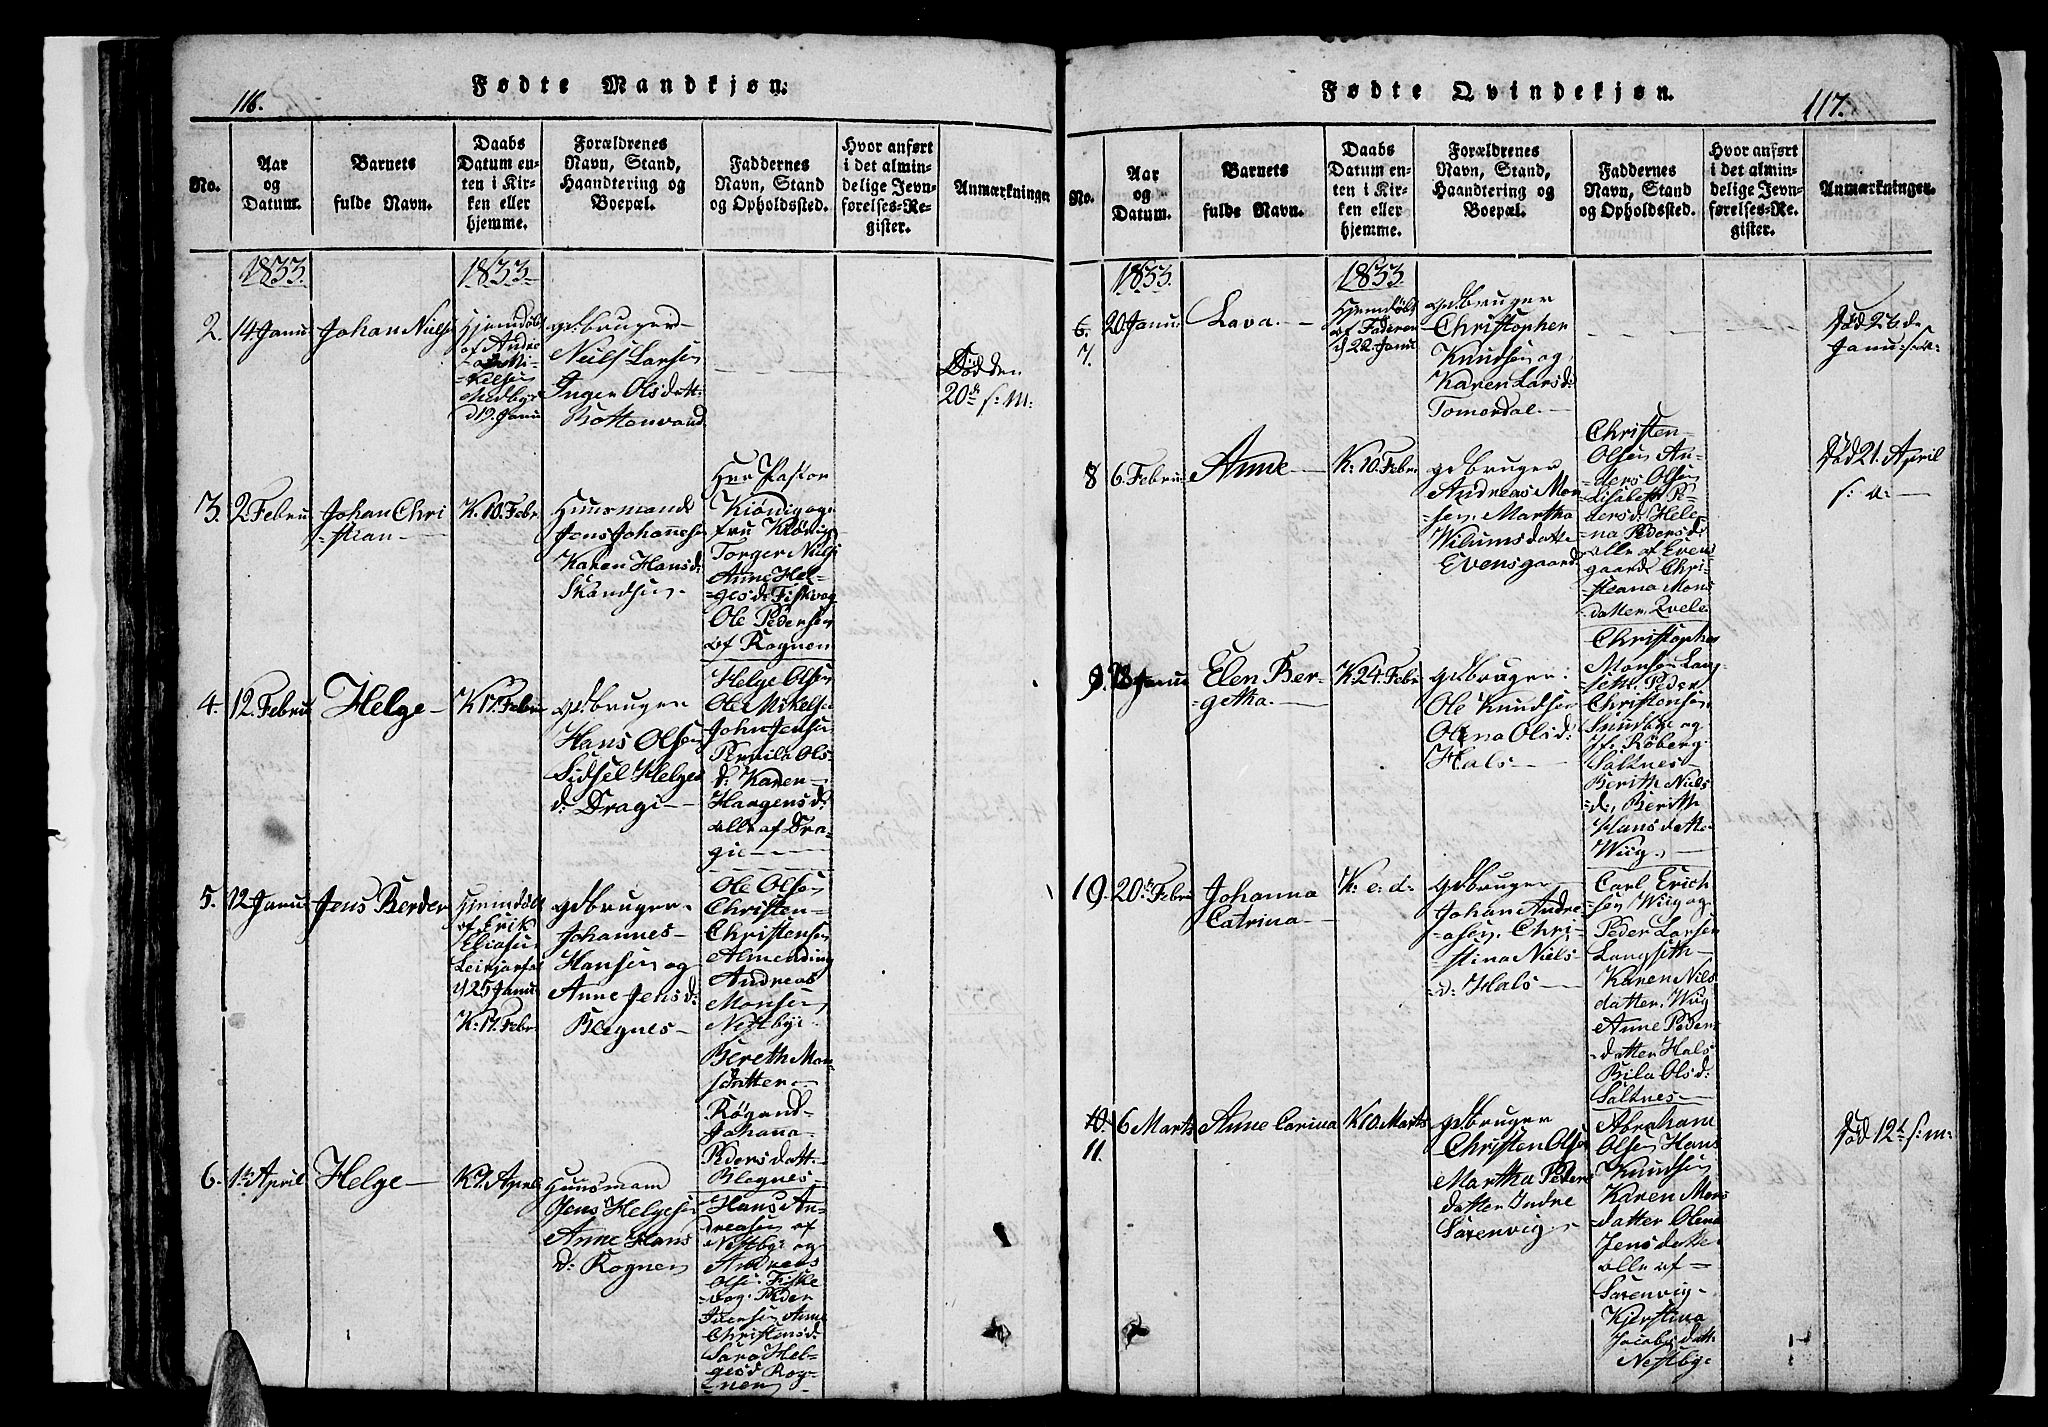 116.
Fødte Mandkjøn.
No.
Aar
og
Datum.
Barnets
fulde Navn.
Daabs
Datum en-
ten i Kir-
ken eller
hjemme.
Forældrenes
Navn, Stand,
Haandtering og
Boepæl.
Faddernes
Navn, Stand
og Opholdssted.
Hvor anført
i det almin-
delige Jevn-
førelses-Re-
gister.
Anmærkninger
1833.
1833
2.
14 Janu
Johan Niels
Hjemdöbt
af Andre
Mi-
kelsen
Medbye
d 19. Janu
gdbruger
Niels Larsen
Inger Olsdatt:
Bottenvand
Död den
20de s: M:
3.
2 Febru
Johan Chri
=stian
K. 10. Febr.
Huusmand
Jens Johannesen
Karen Hansd:
Skandsen
Her Pastor
Kiönig og
fru Kiönig
Torger Niels
Anne Hel-
gesd: Fiskvog
Ole Pedersen
af Rognen
4.
12. Febru
Helge
K 17. Febru
gdbruger
Hans Olsen
Sidsel Helges
d: Dragi
Helge Olsen
Ole Mikelsen
John Jensen
Pernila Ols
d: Karen
Haagensd:
alle af Dra-
gie
5.
12 Janu
Jens Berder
Hjemdöbt
af Erik
Eliasen
d 25 Janu
K: 17. Febr.
gdbruger
Johannes
Hansen og
Anne Jensd:
Blegnes
Ole Olsen
Christen
Christensen
Almending
Andreas
Monsen
Nestbye
Bereth Mon
sdatter
Rögand
Johana
Pedersdatt.
Blegnes
6.
1te April
Helge
K 7. April
Huusmand
Jens Helgesen
Anne Hans
d: Rognen
Hans An-
dreasen af
Nestbye og
Andreas
Olsen Fiske
=vog. Peder
Anne
Christensd:
Sara Hel-
gesd Rog-
=nen
Fødte Qvindekjøn.
117.
No.
Aar
og
Datum.
Barnets
fulde Navn.
Daabs
Datum en-
ten i Kir-
ken eller
hjemme.
Forældrenes
Navn, Stand,
Haandtering og
Boepæl.
Faddernes
Navn, Stand
og Opholdssted.
Hvor anført
i det almin-
delige Jevn-
førelses-Re-
gister.
Anmærkninger.
1833.
1833
6
7.
20 Janu
Lava
Hjemdöbt
af Faderen
d 22. Janu
gdbruger
Christopher
Knudsen og
Karen Larsd:
Tomerdal
Död 26 de
Janu: s: a:
8
6. Febru
Anne
K: 10. Febr.
gdbruger
Andreas Mon
=sen, Martha
Wilumsdatte
Evensgaard
Christen
Olsen An-
ders Olsen
Lisabeth Pe-
dersd: Hele-
na Pedersd:
alle af Evens
gaard. Chri-
steana Mons
datter
Död 21. April
s: a:
9.
18 Janu
Elen Ber-
=getha
K. 24. Febr
gdbruger:
Ole Knudsen
Olena Olsd:
Hals
Christopher
Monsen Lang
=seth. Peder
Christensen
Sundbye og
Röberg
Saltnes
Berith Niels
=d:, Berith
Hansdatte
Wiig
19.
20de Febr
Johanna
Catrina
K: e: d:
gdbruger
Johan Andre
=asen, Chri-
stina Niels
=d: Hals
Carl Erich
=sen Wiig og
Peder Larsen
Langseth
Karen Niels
datter. Wiig
Anne Peder-
datter Hals
Bila Olsd:
Saltnes
10.
11.
6 Marts
Anne Carina
K10. Marts
gdbruger
Christen Olsen
Martha Peders
datter Indre
Saxenvig
Abraham
Olsen Hans
Knudsen
Karen Mons
datter Olena
Jensdatte
alle af
Saxenvig
Kjerstina
Jacobsdatt
Nestbye
Död 12te s: m: